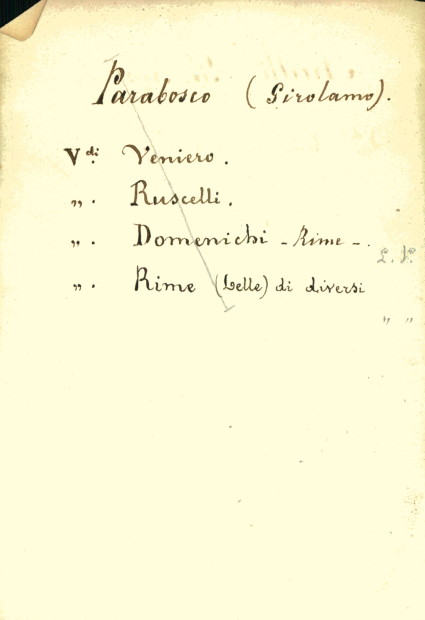 Parabosco (Girolamo).
V.di Veniero.
„ . Ruscelli.
„ . Domenichi - Rime - .
„ . Rime (belle) di diversi
„ „